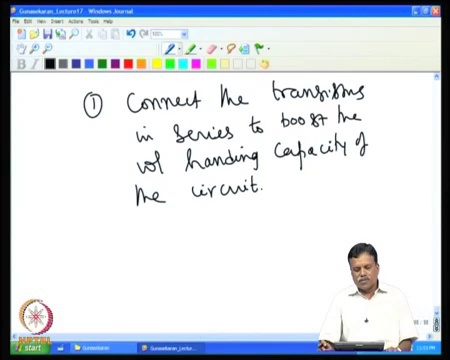 Gunasekaran_Lecture17 - Windows Journal
File Edit View Insert Actions Tools Help
100%
B I
① Connect the transistors
in series to boost the
vol handing capacity of
the circuit.
NPTEL
start
Gunasekaran
Gunasekaran_Lectur...